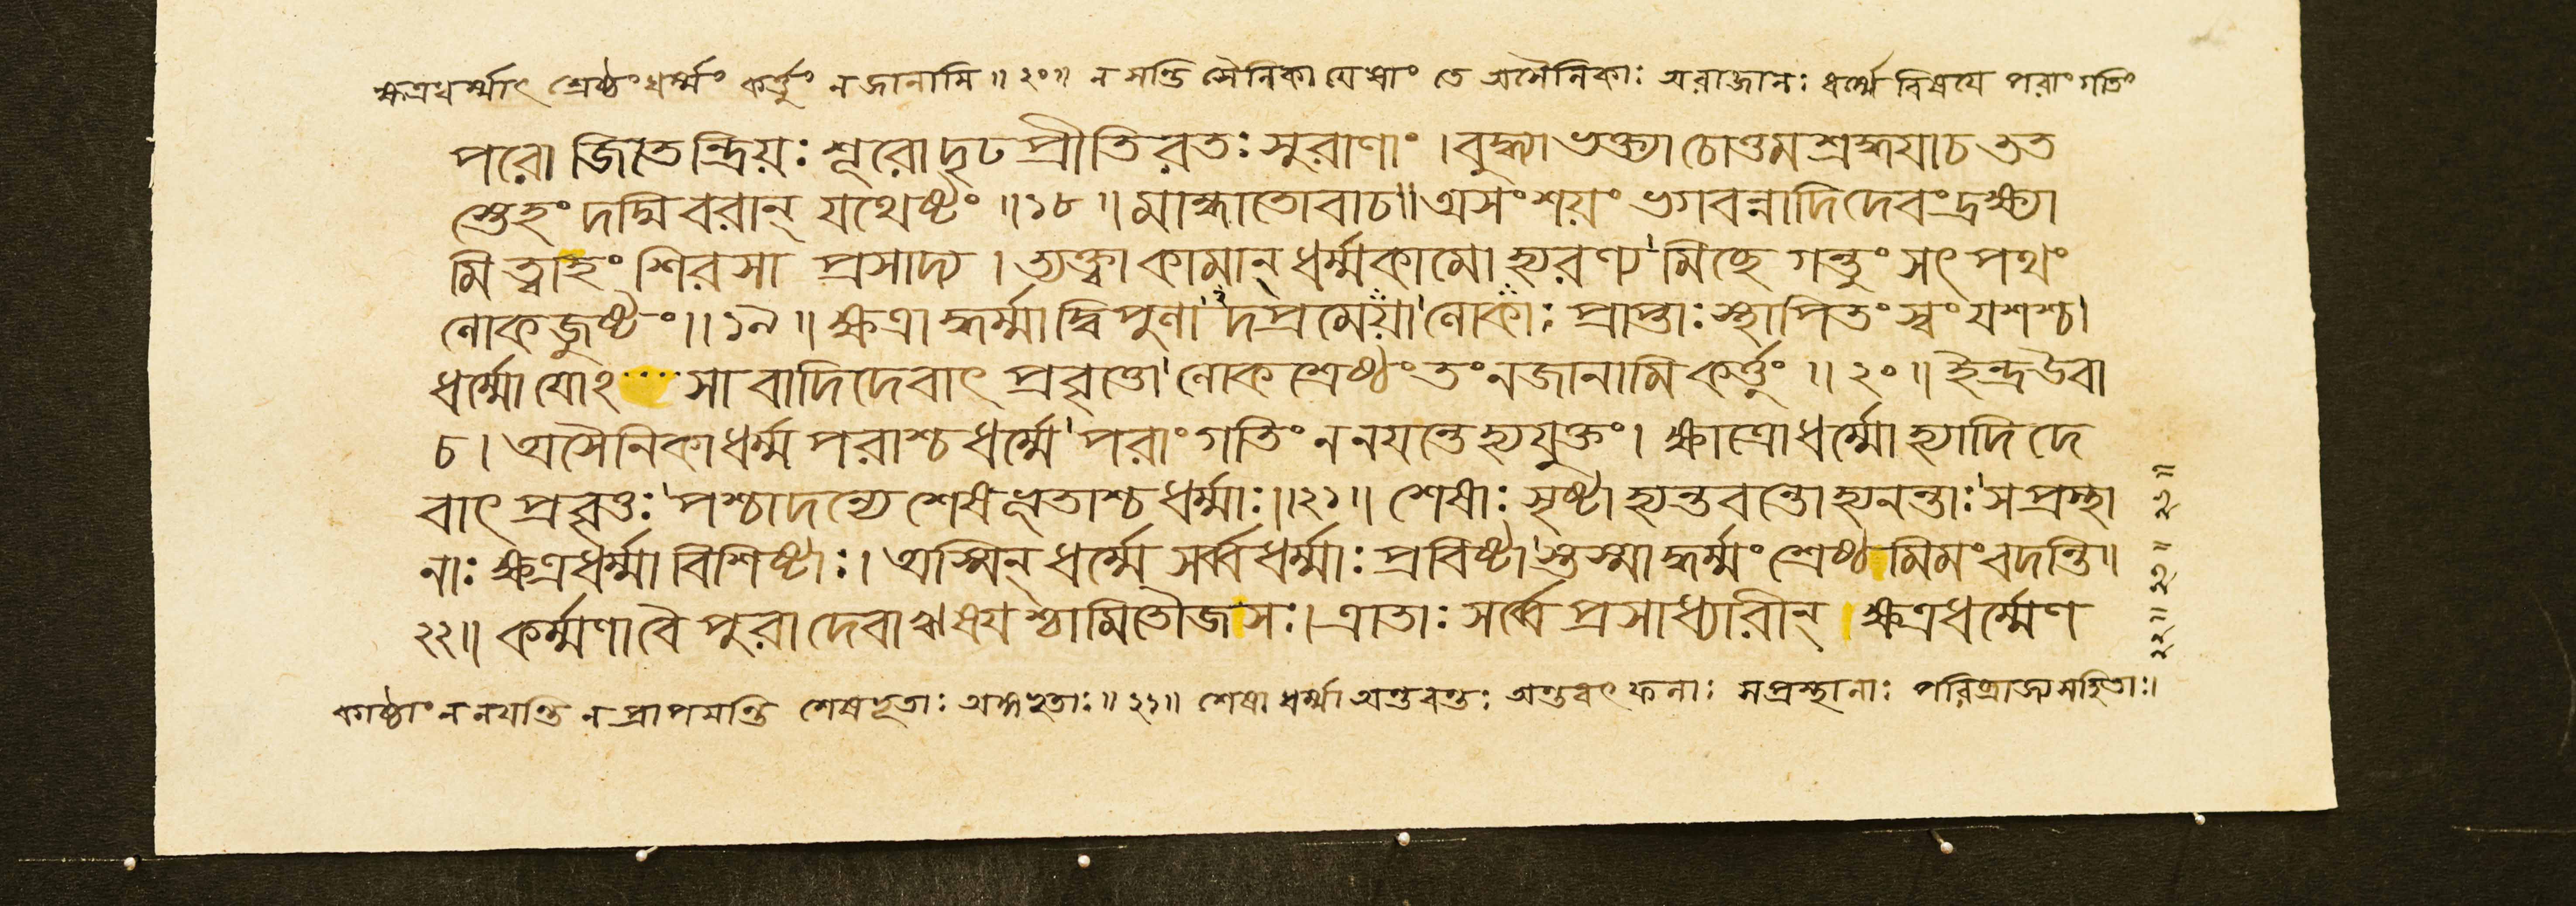 ক্ষত্রধর্ম্মাৎ শ্রেষ্ঠংধর্ম্মং কর্ত্তুং ন জানামি ॥ ২০॥ ন সন্তি সৈনিকা যেষাং তে অসৈনিকাঃ অরাজানঃ ধর্ম্মে বিষয়ে পরাং গতিং
পরো জিতেন্দ্রিয়ঃ শূরোদৃঢপ্রীতিরতঃ সুরাণাং । বুদ্ধ্যা ভক্ত্যা চোত্তম শ্রদ্ধযাচ তত
স্তেহং দদ্মি বরান্ যথেষ্টং ॥১৮॥ মান্ধাতোবাচ॥ অসংশয়ং ভগবন্নাদিদেবংদ্রক্ষ্যা
মি ত্বাহং শিরসা প্রসাদ্য । ত্যক্ত্বা কামান্ ধর্ম্মকামো হ্যরণ্য মিছে গন্তুং সৎ পথং
লোকজুষ্টং ॥১৯॥ ক্ষত্রাদ্ধর্ম্মাদ্বিপুলা দপ্রমেয়া লোকাঃ প্রাপ্তাঃ স্থাপিতং স্বং যশশ্চ।
ধর্ম্মো যোঽ সা বাদিদেবাৎ প্রবৃত্তো লোকশ্রেষ্ঠংতংনজানামি কর্ত্তুং ॥ ২০॥ ইন্দ্রউবা
চ । অসৈনিকাধর্ম্মপরাশ্চধর্ম্মে পরাং গতিং ননযন্তেহ্যযুক্তং। ক্ষাত্রোধর্ম্মো হ্যাদিদে
বাৎ প্রবৃত্তঃ পশ্চাদন্যে শেষভূতাশ্চ ধর্ম্মাঃ॥২১॥ শেষাঃ সৃষ্টা হ্যন্তবন্তো হ্যনন্তাঃ সপ্রস্থা
নাঃ ক্ষত্রধর্ম্মা বিশিষ্টাঃ। অস্মিন্ ধর্ম্মে সর্ব্বধর্ম্মাঃ প্রবিষ্টা স্তস্মাদ্ধর্ম্মং শ্রেষ্ঠমিমং বদন্তি॥
২২॥ কর্ম্মণা বৈ পুরা দেবা ঋষয়শ্চামিতৌজসঃ। ত্রাতাঃ সর্ব্বে প্রসাধ্যারীন্ । ক্ষত্রধর্ম্মেণ
কাষ্ঠাং ন নযন্তি ন প্রাপযন্তি শেষভূতাঃ অঙ্গভূতাঃ॥ ২১॥ শেষা ধর্ম্মা অন্তবন্তঃ অন্তবৎ ফলাঃ সপ্রস্থানাঃ পরিব্রাজ্যসহিতাঃ।